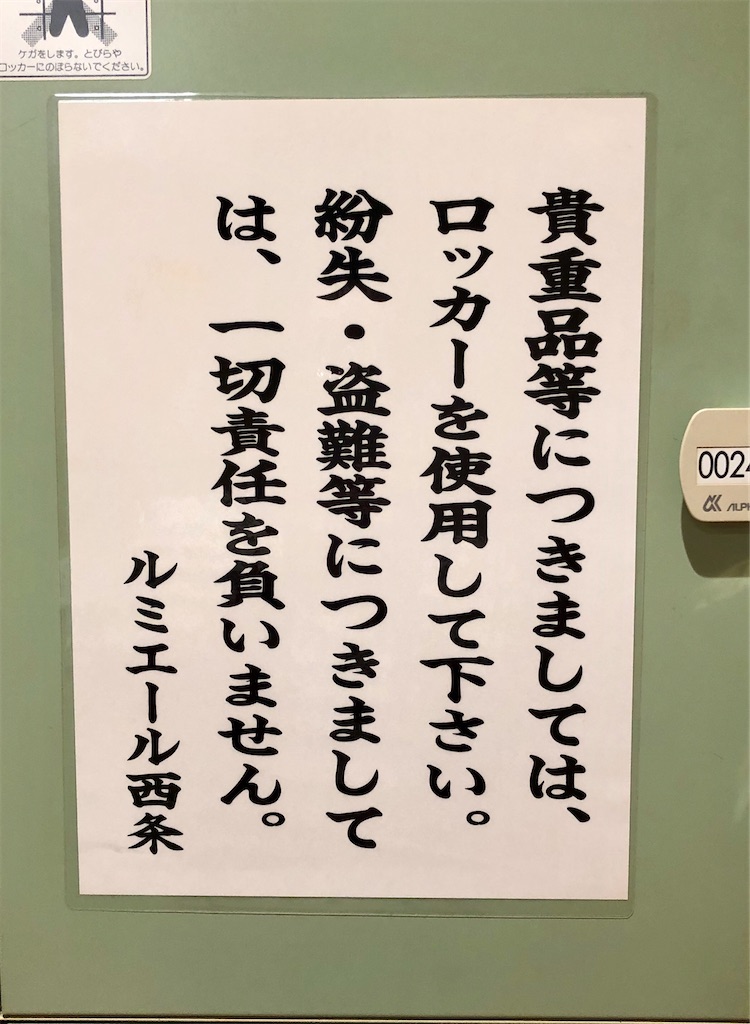 ケガをします。とびらや
ロッカーにのぼらないでください。
貴重品等につきましては、
ロッカーを使用して下さい。
紛失・盗難等につきまして
は、一切責任を負いません。
ルミエール西条